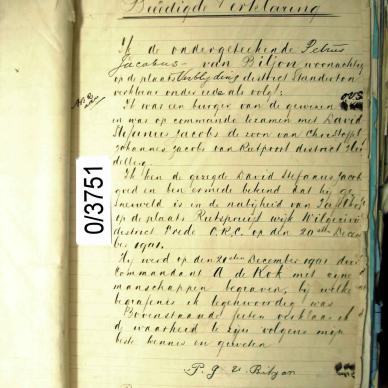 Beëdigde Verklaring
Ik de ondergeteekende Petrus
Jacobus van Biljon woonachtig
op de plaats Verblyding district Standerton
verklaar onder eede als volgt:
Ik was een burger van de gewesen OVS
en was op commando tezamen met David
Stefanus Jacobs de zoon van Christoffel
Johannes Jacobs van Rietpoort district
Ik ken de gezegde David Stefanus Jacobs
goed en ben ermede bekend dat hij ge
sneuveld is in de nabijheid van
op de plaats Rietspruit wijk Wilgerivier
district Vrede O.R.C. op den 20ste Decem
ber 1901.
Hij werd op den 21sten December 1901 door
Commandant A de Kok met eenige
manschappen begraven, bij welke
begrafenis ik tegenwoordig was
Bovenstaande feiten verklaar ik
de waarheid te zijn volgens mijn
beste kennis en geweten
P. J. v. Biljon
0/3751